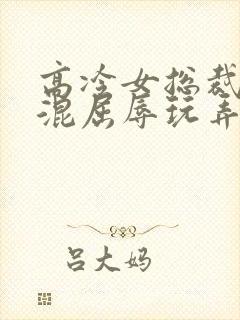 高冷女总裁
混屈辱玩弄
吕大妈